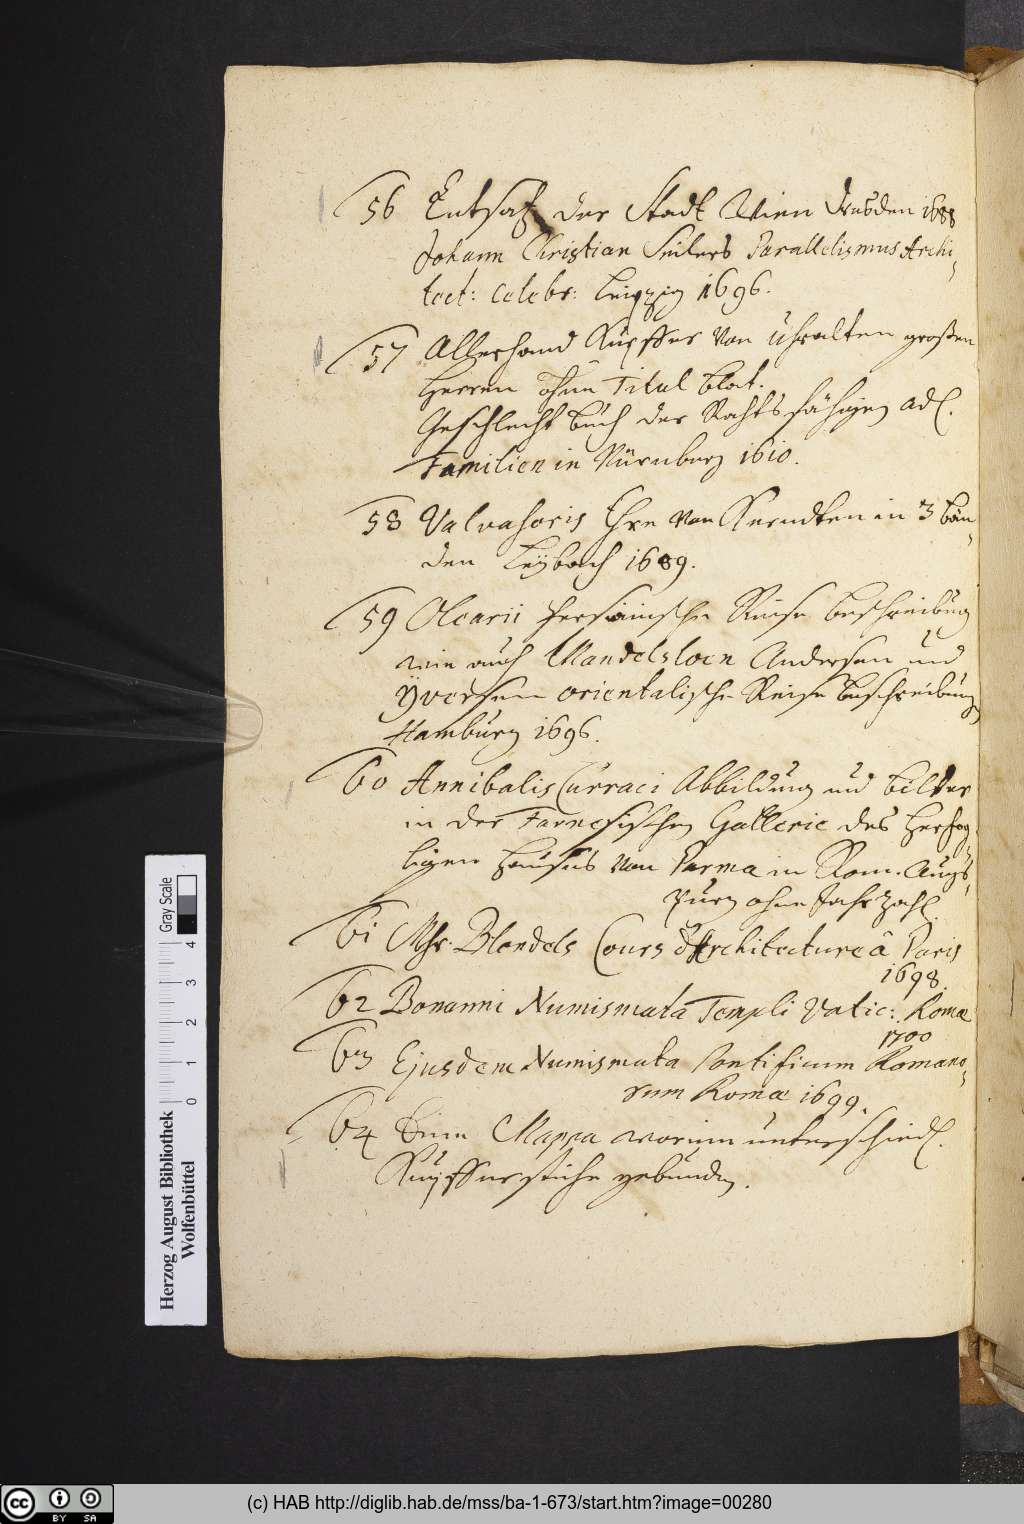 56 Entsatz der Stadt Wien Dresden 1688
Johann Christian Seilers Parallelismus Archi-
tect: celebr: Leipzig 1696.
57 Allerhand Kupffer von uhralten großen
Herren ohne Titul blat.
Geschlecht buch der Rathsfähigen adl.
Familien in Nürnberg 1610.
58 Valvasoris Ehre von Kerndten in 3 bän-
den Leybach 1689.
59 Olearii persianische Reise beschreibung
wie auch Mandelsloen Andersen und
Yversen orientalische Reise beschreibung
Hamburg 1696.
60 Annibalis Curraci Abbildung und bilder
in der Farnesischen Gallerie des Hertzog-
lichen Hauses von Parma in Rom. Augs-
purg ohne Jahrzahl.
61 Msr. Blondels Cours d'Architecture â Paris
1698.
62 Bonanni Numismata Templi Vatic: Romæ
1700
63 Ejusdem Numismata Pontificum Romano-
rum Romæ 1699.
64 Eine Mappa worinn unterschiedl.
Kupfferstiche gebunden.
Herzog August Bibliothek
Wolfenbüttel
Gray Scale
0 1 2 3 4
(c) HAB http://diglib.hab.de/mss/ba-1-673/start.htm?image=00280
cc BY SA